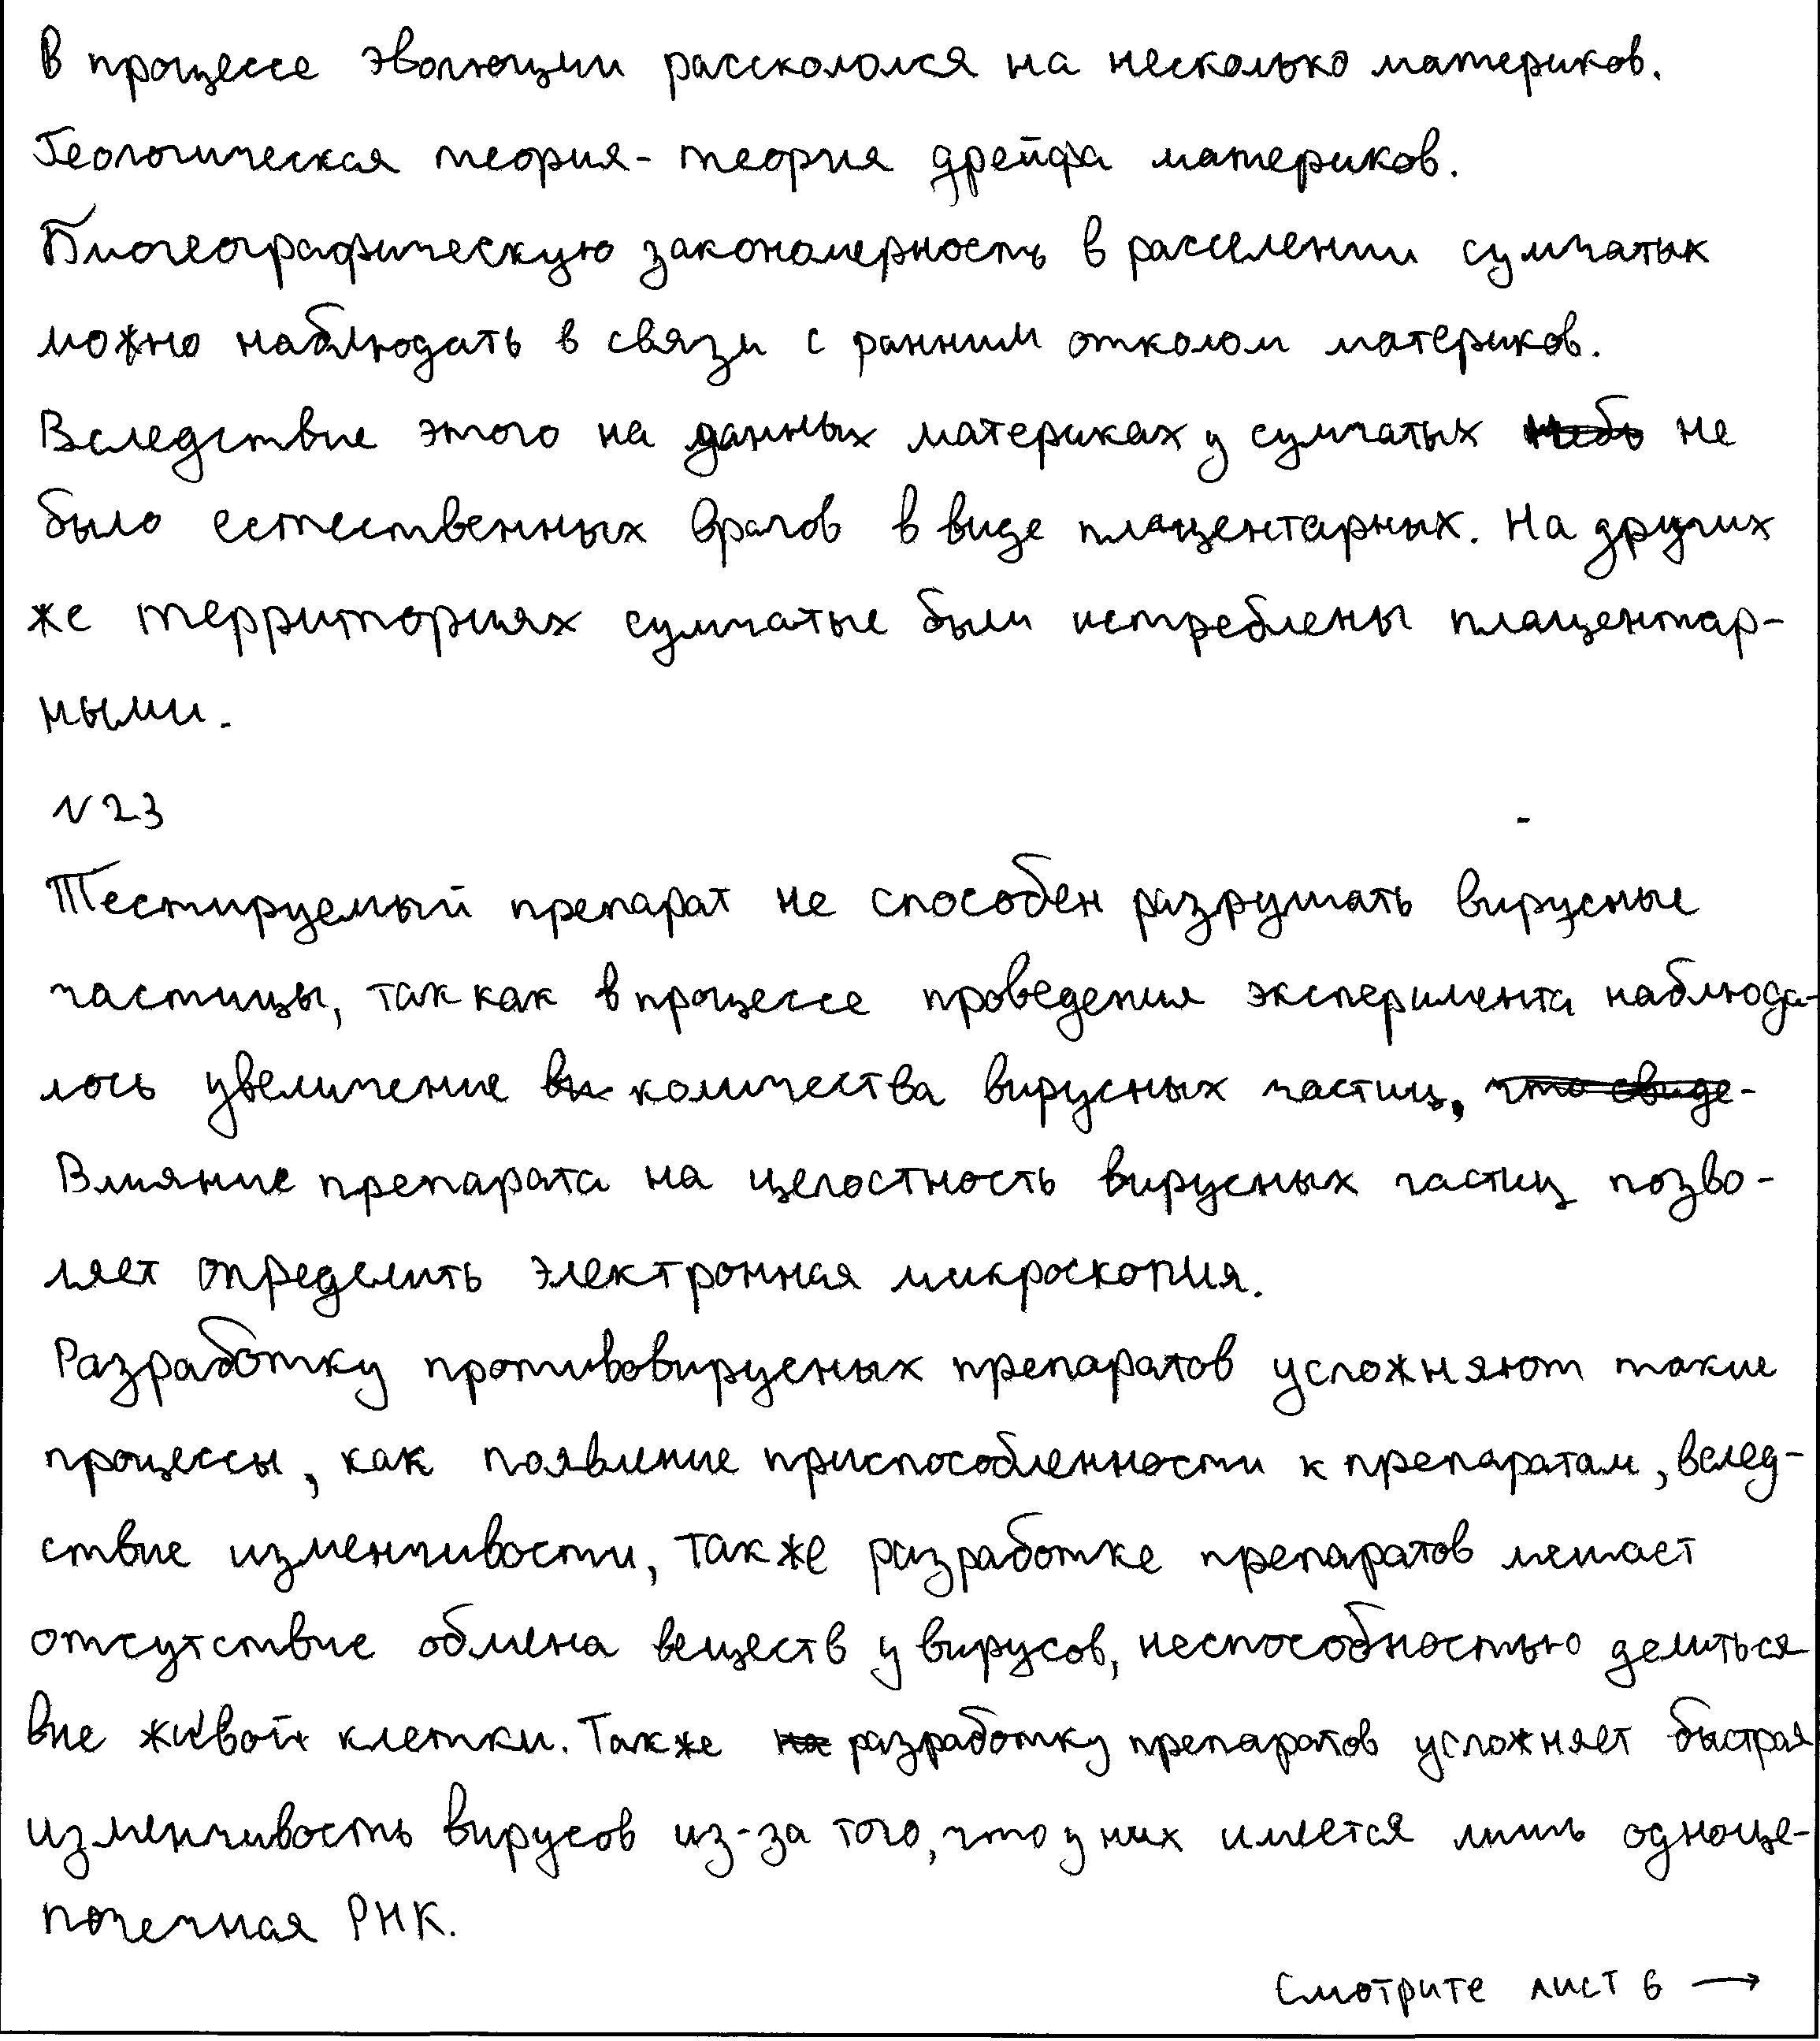 В процессе эволюции раскололся на несколько материков.
Геологическая теория - теория дрейфа материков.
Биогеографическую закономерность в расселении сумчатых
можно наблюдать в связи с ранним отколом материков.
Вследствие этого на данных материках у сумчатых не
было естественных врагов в виде плацентарных. На других
же территориях сумчатые были истреблены плацентар-
ными.
N 23
Тестируемый препарат не способен разрушать вирусные
частицы, так как в процессе проведения эксперимента наблюда-
лось увеличение количества вирусных частиц,
Влияние препарата на целостность вирусных частиц позво-
ляет определить электронная микроскопия.
Разработку противовирусных препаратов усложняют такие
процессы, как появление приспособленности к препаратам, вслед-
ствие изменчивости, также разработке препаратов мешает
отсутствие обмена веществ у вирусов, неспособностью делиться
вне живой клетки. Также разработку препаратов усложняет быстрая
изменчивость вирусов из-за того, что у них имеется лишь одноце-
почечная РНК.
Смотрите лист 6 →